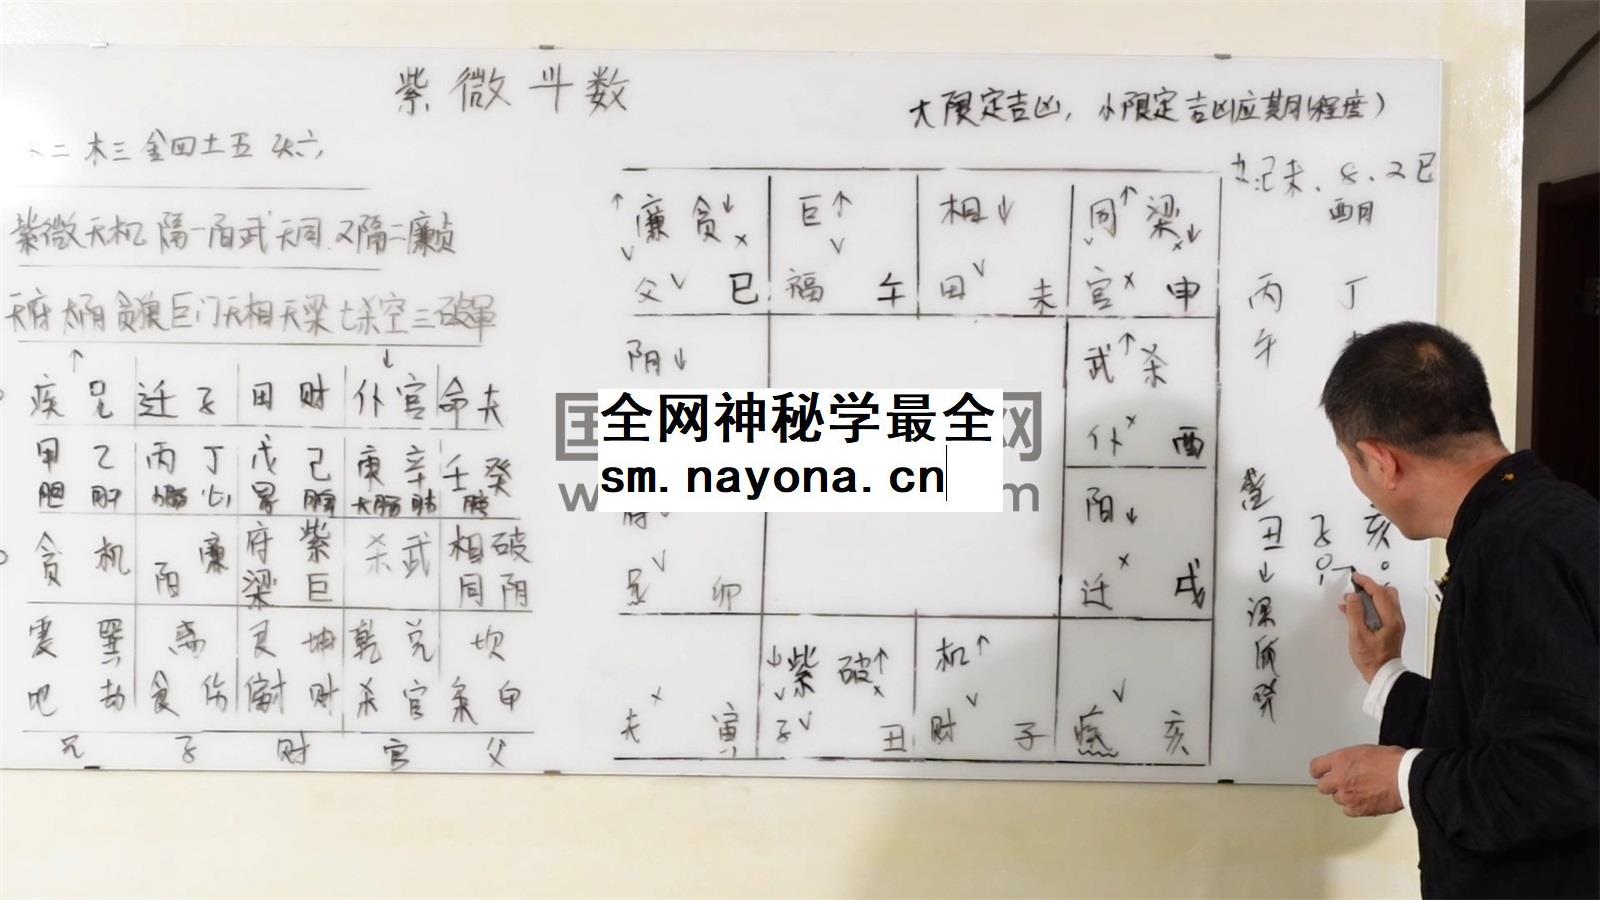 紫微斗数
大限定吉凶，小限定吉凶应期(程度)
二 木三 金四土五 火六，
紫微天机 隔一阳武天同 又隔二廉贞
天府太阴贪狼巨门天相天梁七杀空三破军
↑ ↓
疾 兄 迁 子 田 财 仆 官 命 夫
甲 乙 丙 丁 戊 己 庚 辛 壬 癸
胆 肝 小肠 心 胃 脾 大肠 肺
贪 机 阳 廉 府 紫 杀 武 相 破
梁 巨 同 阴
震 巽 离 艮 坤 乾 兑 坎
劫 食 伤 财 杀 官
兄 子 财 官 父
↑廉 贪↓
父 巳
巨↑
福 午
相↓
田 未
同↑ 梁↓
官 申
阴↓
武↑ 杀
仆 酉
兄 卯
阳↓
迁 戌
夫 寅
↓紫 破↑
子 丑
机↑
财 子
疾 亥
己未. 8. 2巳
酉月
丙 丁
午
丑 子 亥
↓
全网神秘学最全
sm.nayona.cn
国 网
w m